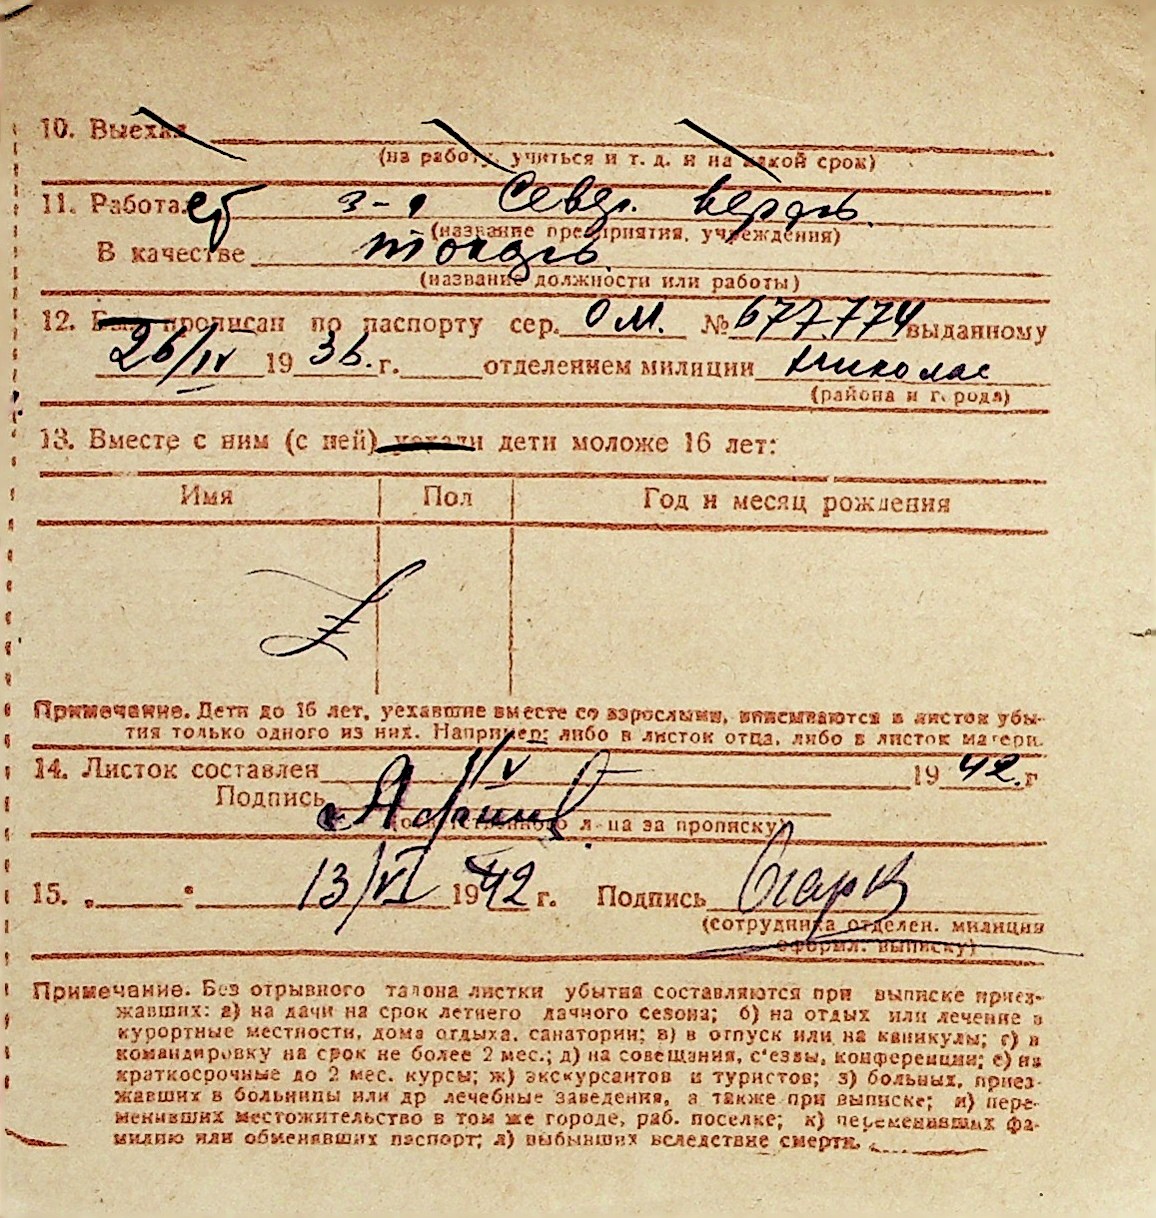 10. Выехал
(на работу, учиться и т. д. и на какой срок)
11. Работает з-д Север. верфь.
(название предприятия, учреждения)
В качестве токарь.
(название должности или работы)
12. Был прописан по паспорту сер. ОМ. № 677.774 выданному
26/IV 1936. г. отделением милиции Николас
(района и города)
13. Вместе с ним (с ней) уехали дети моложе 16 лет:
Имя Пол Год и месяц рождения
Z
Примечание. Дети до 16 лет, уехавшие вместе со взрослыми, вписываются в листок убы-
тия только одного из них. Например: либо в листок отца, либо в листок матери.
14. Листок составлен 1/V 1942. г
Подпись
(ответственного л-ца за прописку)
15. „ “ 13/VI 1942 г. Подпись
(сотрудника отделен. милиции
оформл. выписку)
Примечание. Без отрывного талона листки убытия составляются при выписке приез-
жавших: а) на дачи на срок летнего дачного сезона; б) на отдых или лечение в
курортные местности, дома отдыха, санатории; в) в отпуск или на каникулы; г) в
командировку на срок не более 2 мес.; д) на совещания, с'езвы, конференции; е) на
краткосрочные до 2 мес. курсы; ж) экскурсантов и туристов; з) больных, приез-
жавших в больницы или др лечебные заведения, а также при выписке; и) пере-
менивших местожительство в том же городе, раб. поселке; к) переменивших фа-
милию или обменявших паспорт; л) выбывших вследствие смерти.